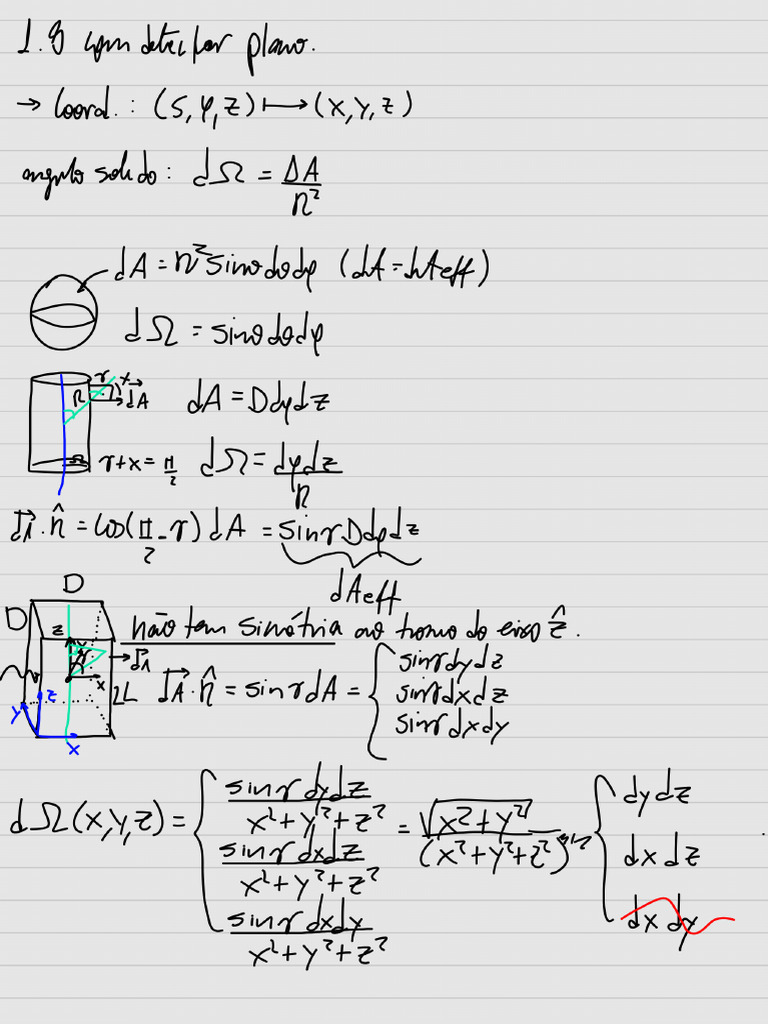 1.8 com detector plano.
→ Coord.: (s, φ, z) ⟼ (x, y, z)
angulo solido: dΩ = ΔA / r²
dA = r² sinθ dθ dφ (dA = dAeff)
dΩ = sinθ dθ dφ
γ x
R dA
dA = D dφ dz
γ + x = π/2
dΩ = dφ dz / r
dA · n̂ = cos(π/2 - γ) dA = sinγ D dφ dz
dAeff
D
D
não tem simétria ao torno do eixo ẑ.
z
dA
x
2L
dA · n̂ = sinγ dA = { sinγ dy dz
sinγ dx dz
sinγ dx dy
z
y
x
dΩ(x, y, z) = { sinγ dy dz / x² + y² + z²
sinγ dx dz / x² + y² + z²
sinγ dx dy / x² + y² + z²
= √x² + y² / (x² + y² + z²)^3/2 { dy dz
dx dz
dx dy